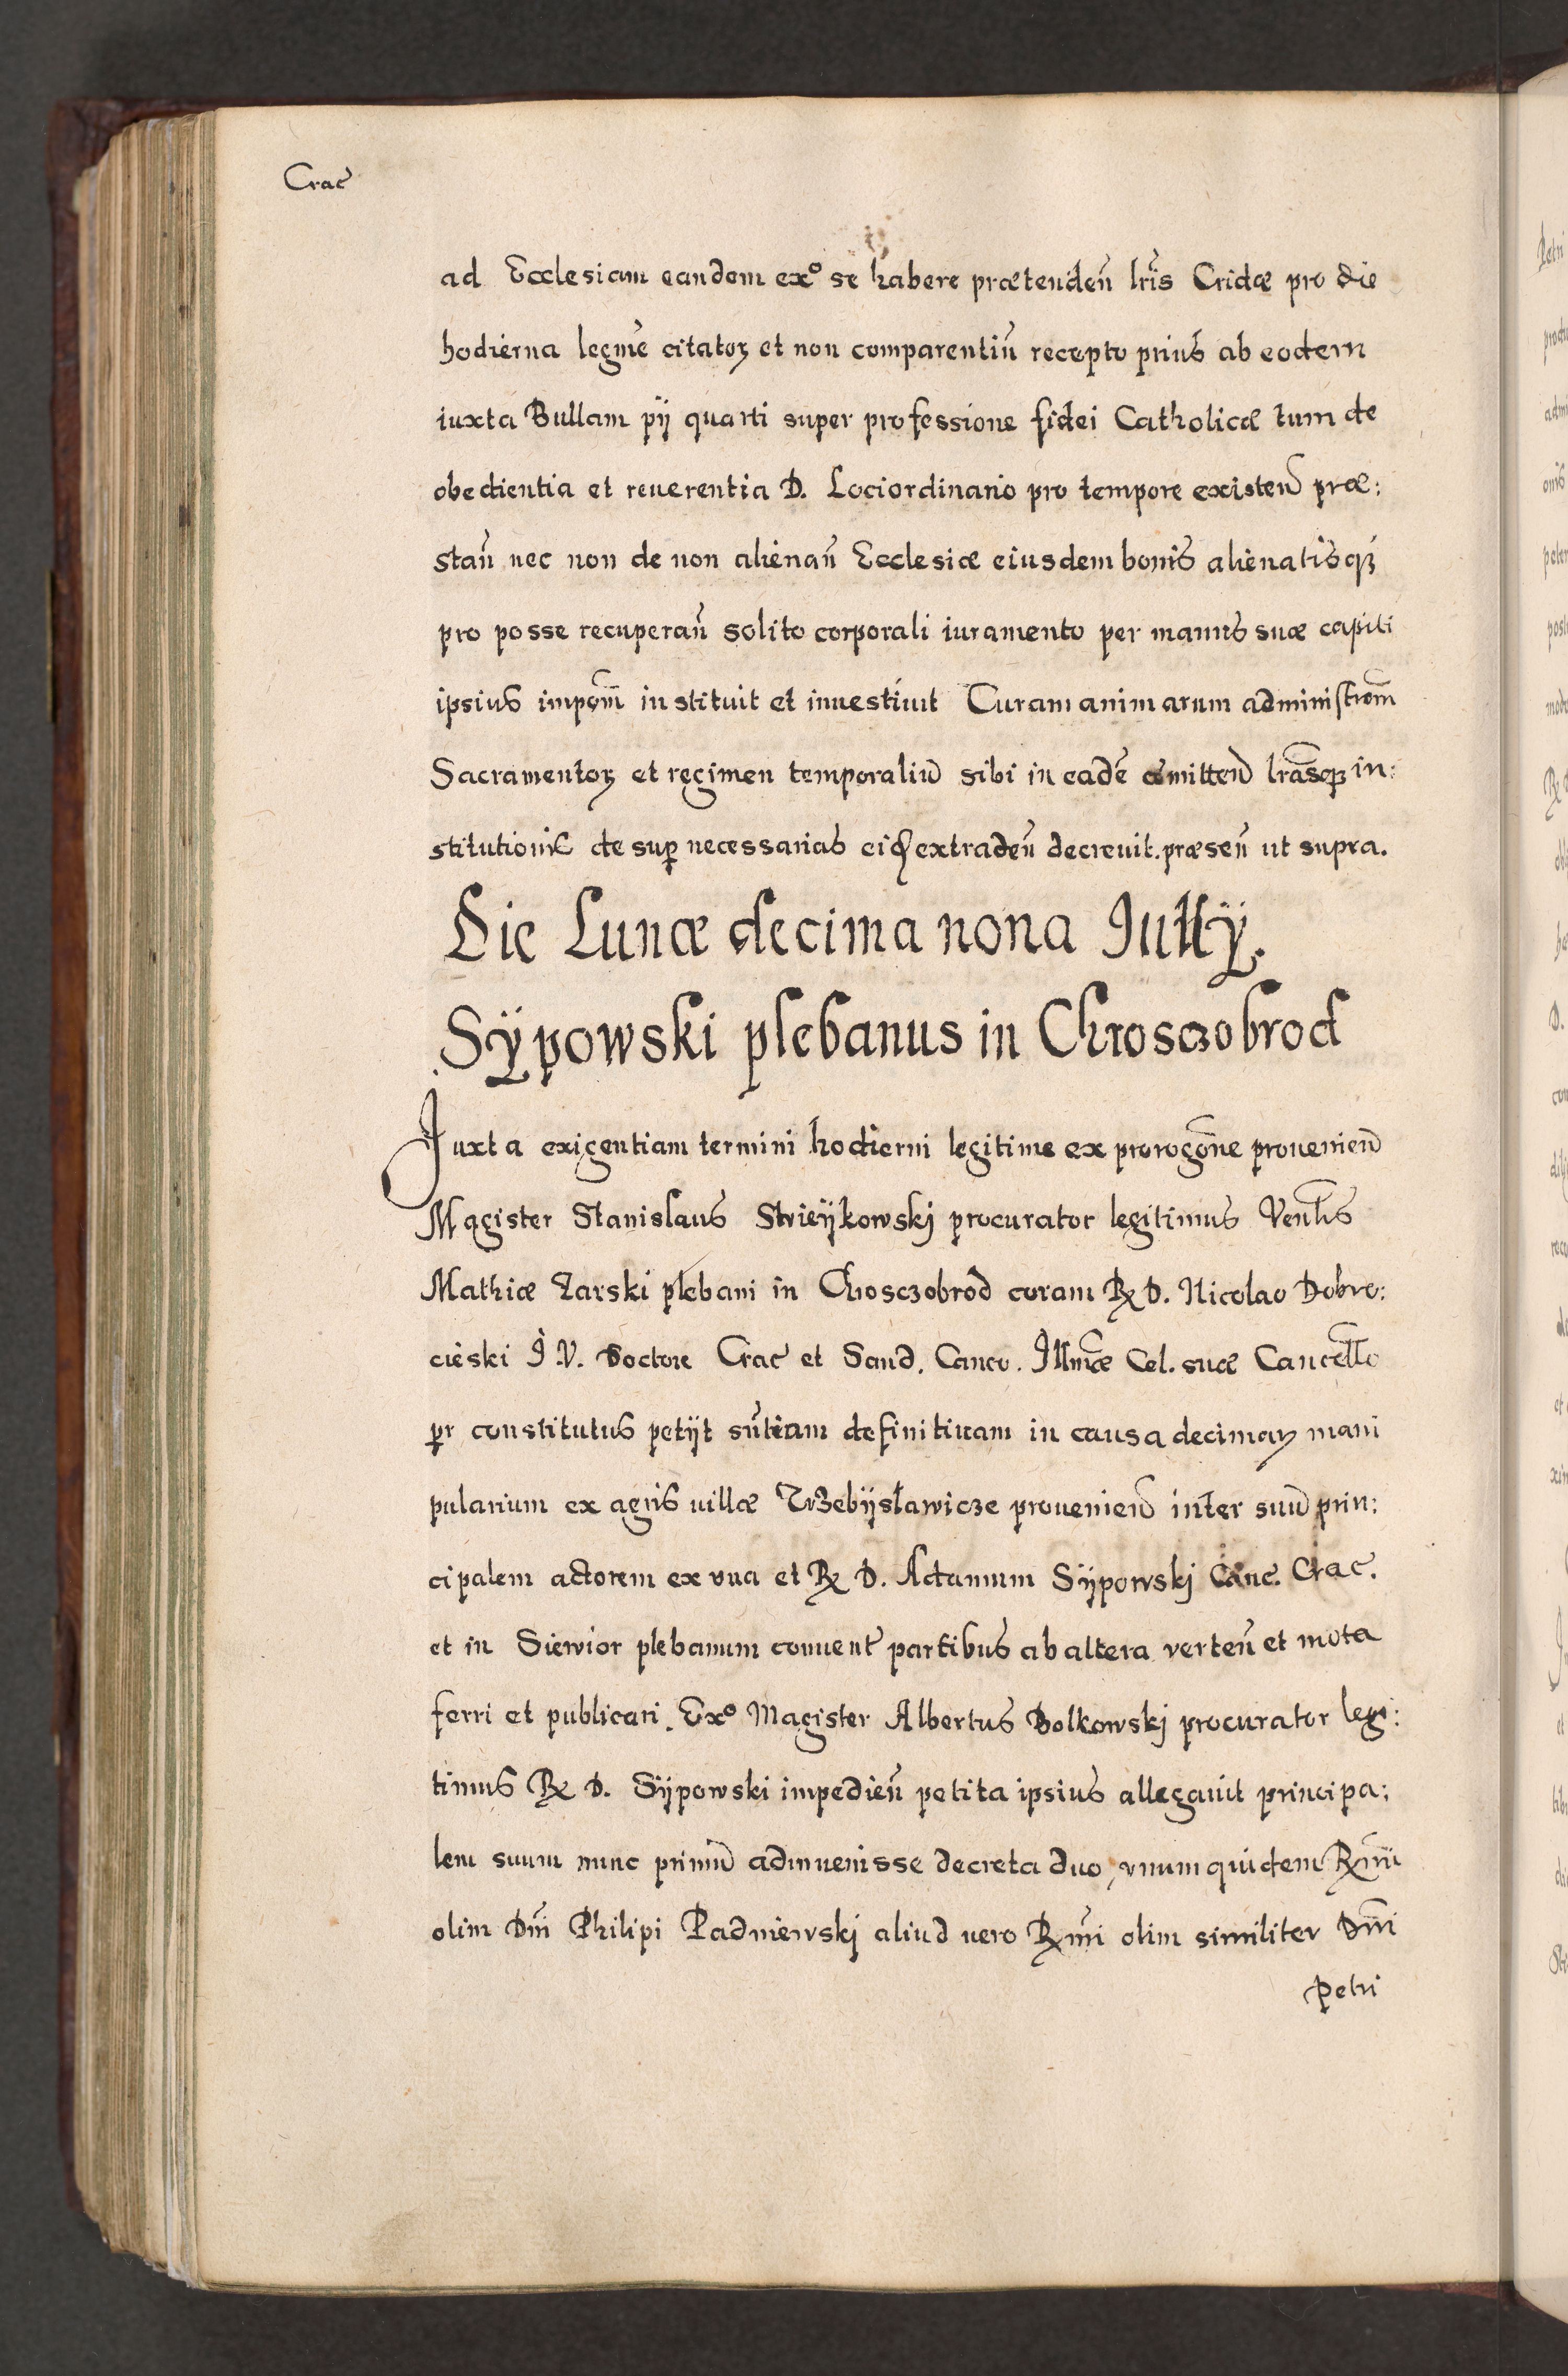 Crac̃
ad Ecclesiam eandem exº se habere prætendeñ lris̃ Cridæ pro die
hodierna legmẽ citatoꝝ et non comparentiũ recepto prius ab eodem
iuxta Bullam pij quarti super professione fidei Catholicæ tum de
obedientia et reuerentia D. Lociordinario pro tempore existeñ præ:
stañ nec non de non alienañ Ecclesiæ eiusdem bonis alienatisqꝫ
pro posse recuperañ solito corporali iuramento per manus suæ capiti
ipsius impom̃ instituit et inuestiuit Curam animarum administrom̃
Sacramentoꝝ et regimen temporaliũ sibi in eadẽ com̃itteñ lras̃qꝫ in:
stitutionis desuꝑ necessarias eidẽ extradeñ decreuit. præseñ ut supra.
Die Lunæ decima nona Julij.
Sÿpowski plebanus in Chrosczobrod
Juxta exigentiam termini hodierni legitime ex prorogoñe prouenieñ
Magister Stanislaus Strieÿkowskj procurator legitimus Venlis̃
Mathiæ Zarski plebani in Chosczobrod coram R̃ D. Nicolao Dobro:
cieski J. V. Doctore Crac̃ et Sand. Canco. Illmæ̃ Cel. suæ Cancell̃o
ꝑr constitutus petijt sñtiam definitiuam in causa decimaꝝ mani
pularium ex agris uillæ Trzebÿsławicze proueniẽn inter suũ prin:
cipalem actorem ex vna et R̃ D. Adamum Sÿpowskj Canc̃. Crac̃.
et in Siewior plebanum conuent̃ partibus ab altera verteñ et mota
ferri et publicari. Exº Magister Albertus Bolkowskj procurator legi:
timus R̃ D. Sÿpowski impedieñ petita ipsius allegauit principa:
lem suum nunc primũ adinuenisse decreta duo, vnum quidem R̃mi
olim Dñi Philipi Padniewskj aliud vero R̃mi olim similiter Dñi
Petri